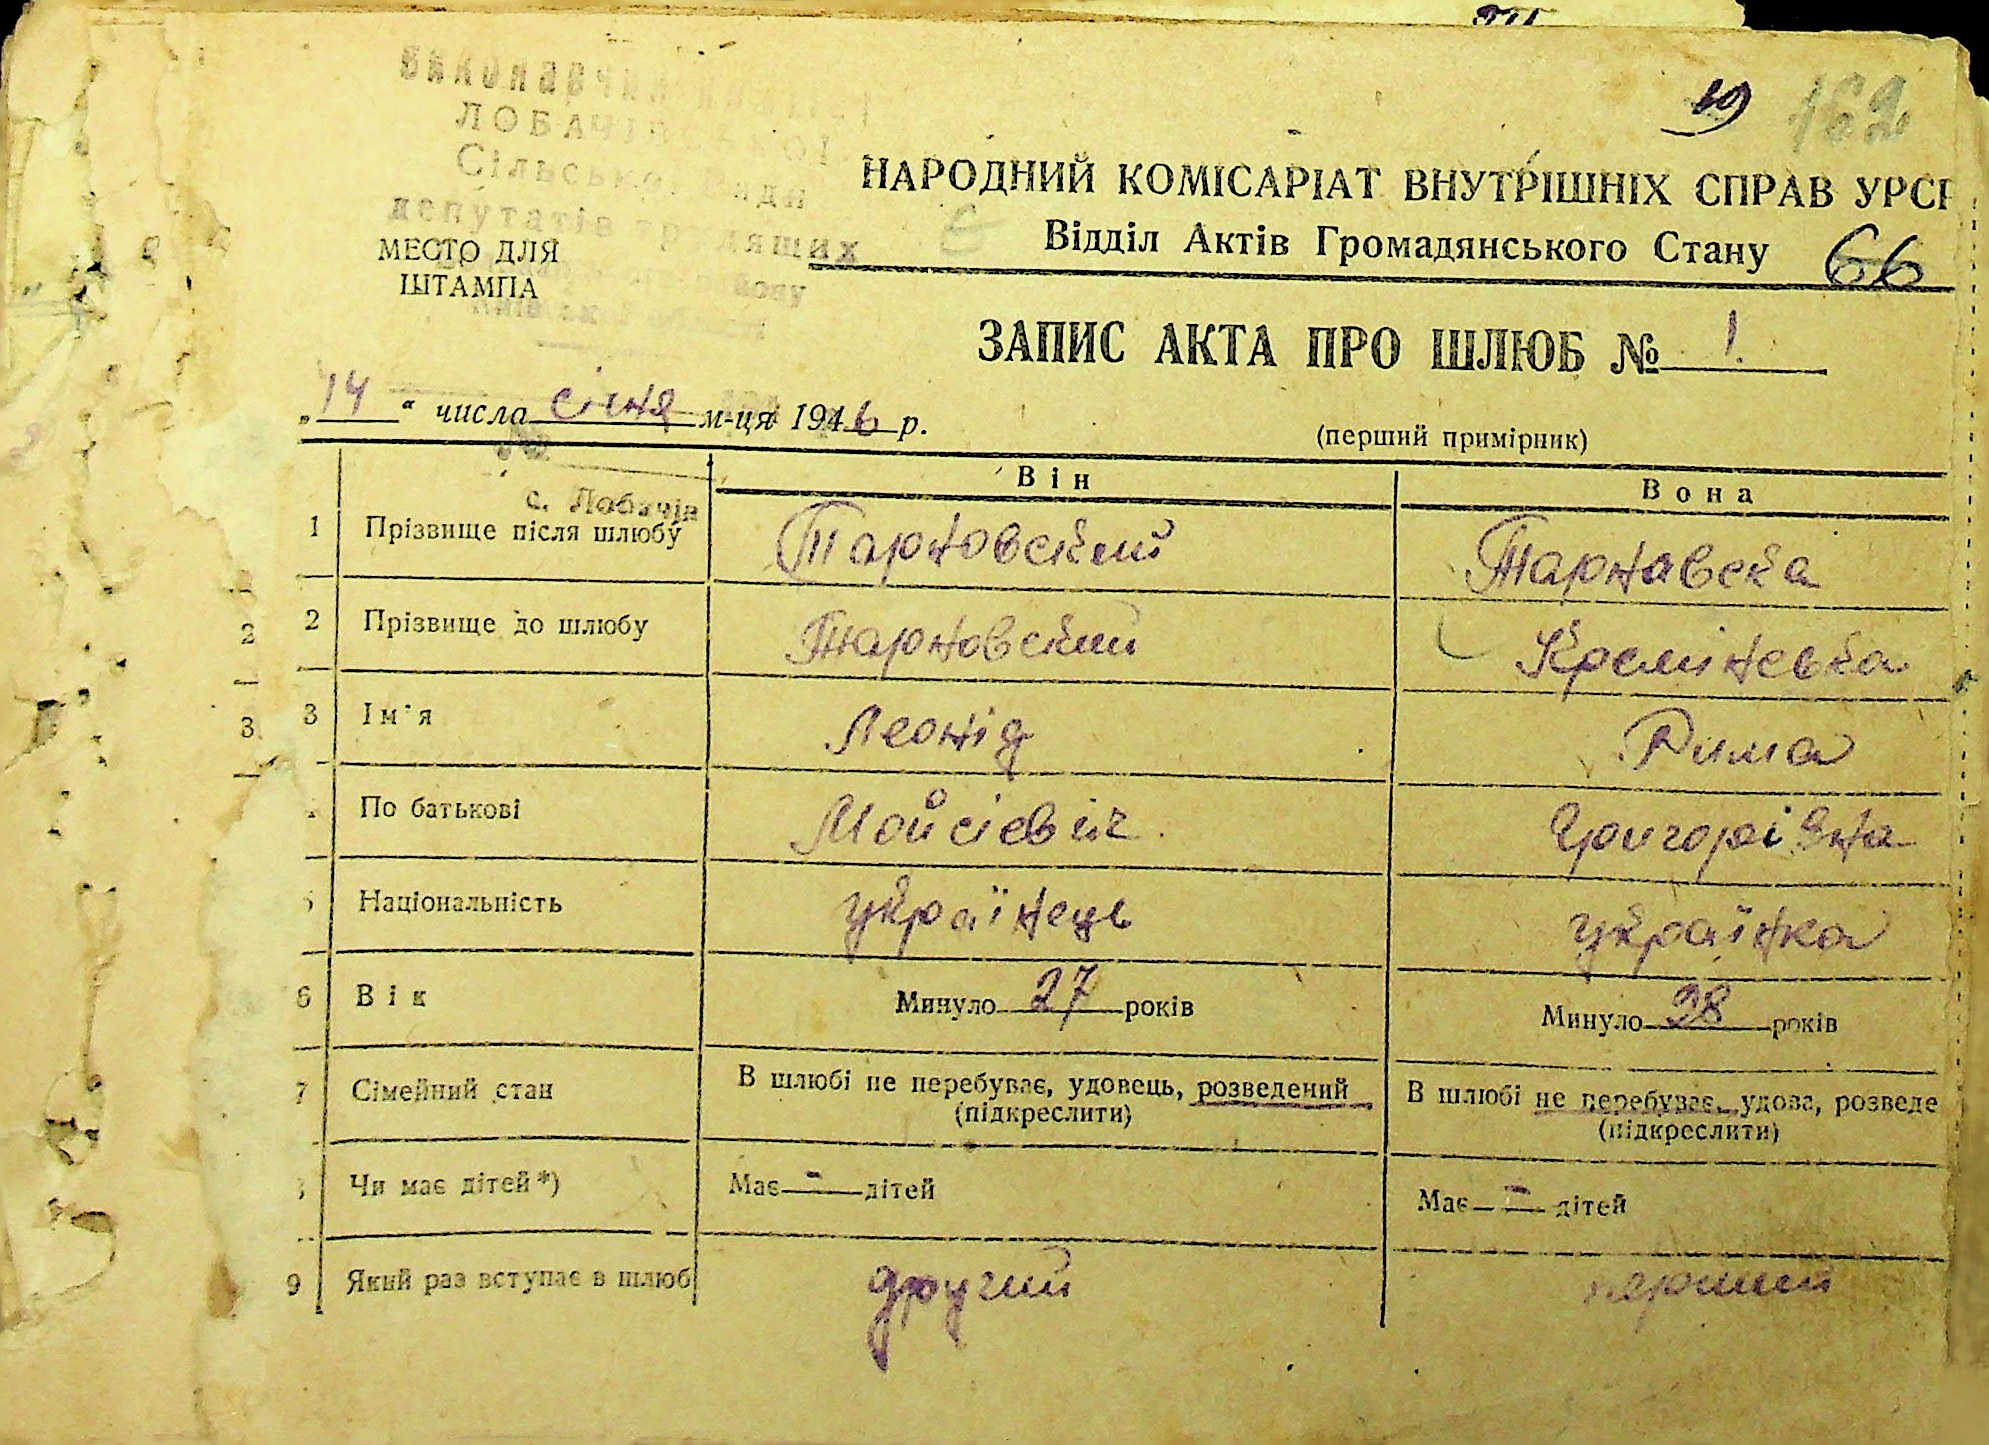 162
19
Виконавчий комітет
ЛОБАЧІВСЬКОЇ
Сільської Ради
депутатів трудящих
НАРОДНИЙ КОМІСАРІАТ ВНУТРІШНІХ СПРАВ УРСР
Відділ Актів Громадянського Стану
66
МЕСТО ДЛЯ
ШТАМПА
ЗАПИС АКТА ПРО ШЛЮБ № 1.
„14“ числа січня м-ця 1946 р.
(перший примірник)
с. Лобачів
Він
Вона
1 Прізвище після шлюбу Тарновский Тарнавска
2 2 Прізвище до шлюбу Тарновский Кремінська
3 3 Ім'я Леонід Рима
По батькові Мойсієвич Григорівна
Національність українець українка
6 Вік Минуло 27 років Минуло 38 років
7 Сімейний стан В шлюбі не перебуває, удовець, розведений В шлюбі не перебуває, удова, розведе
(підкреслити) (підкреслити)
Чи має дітей*) Має - дітей Має - дітей
9 Який раз вступає в шлюб другий перший